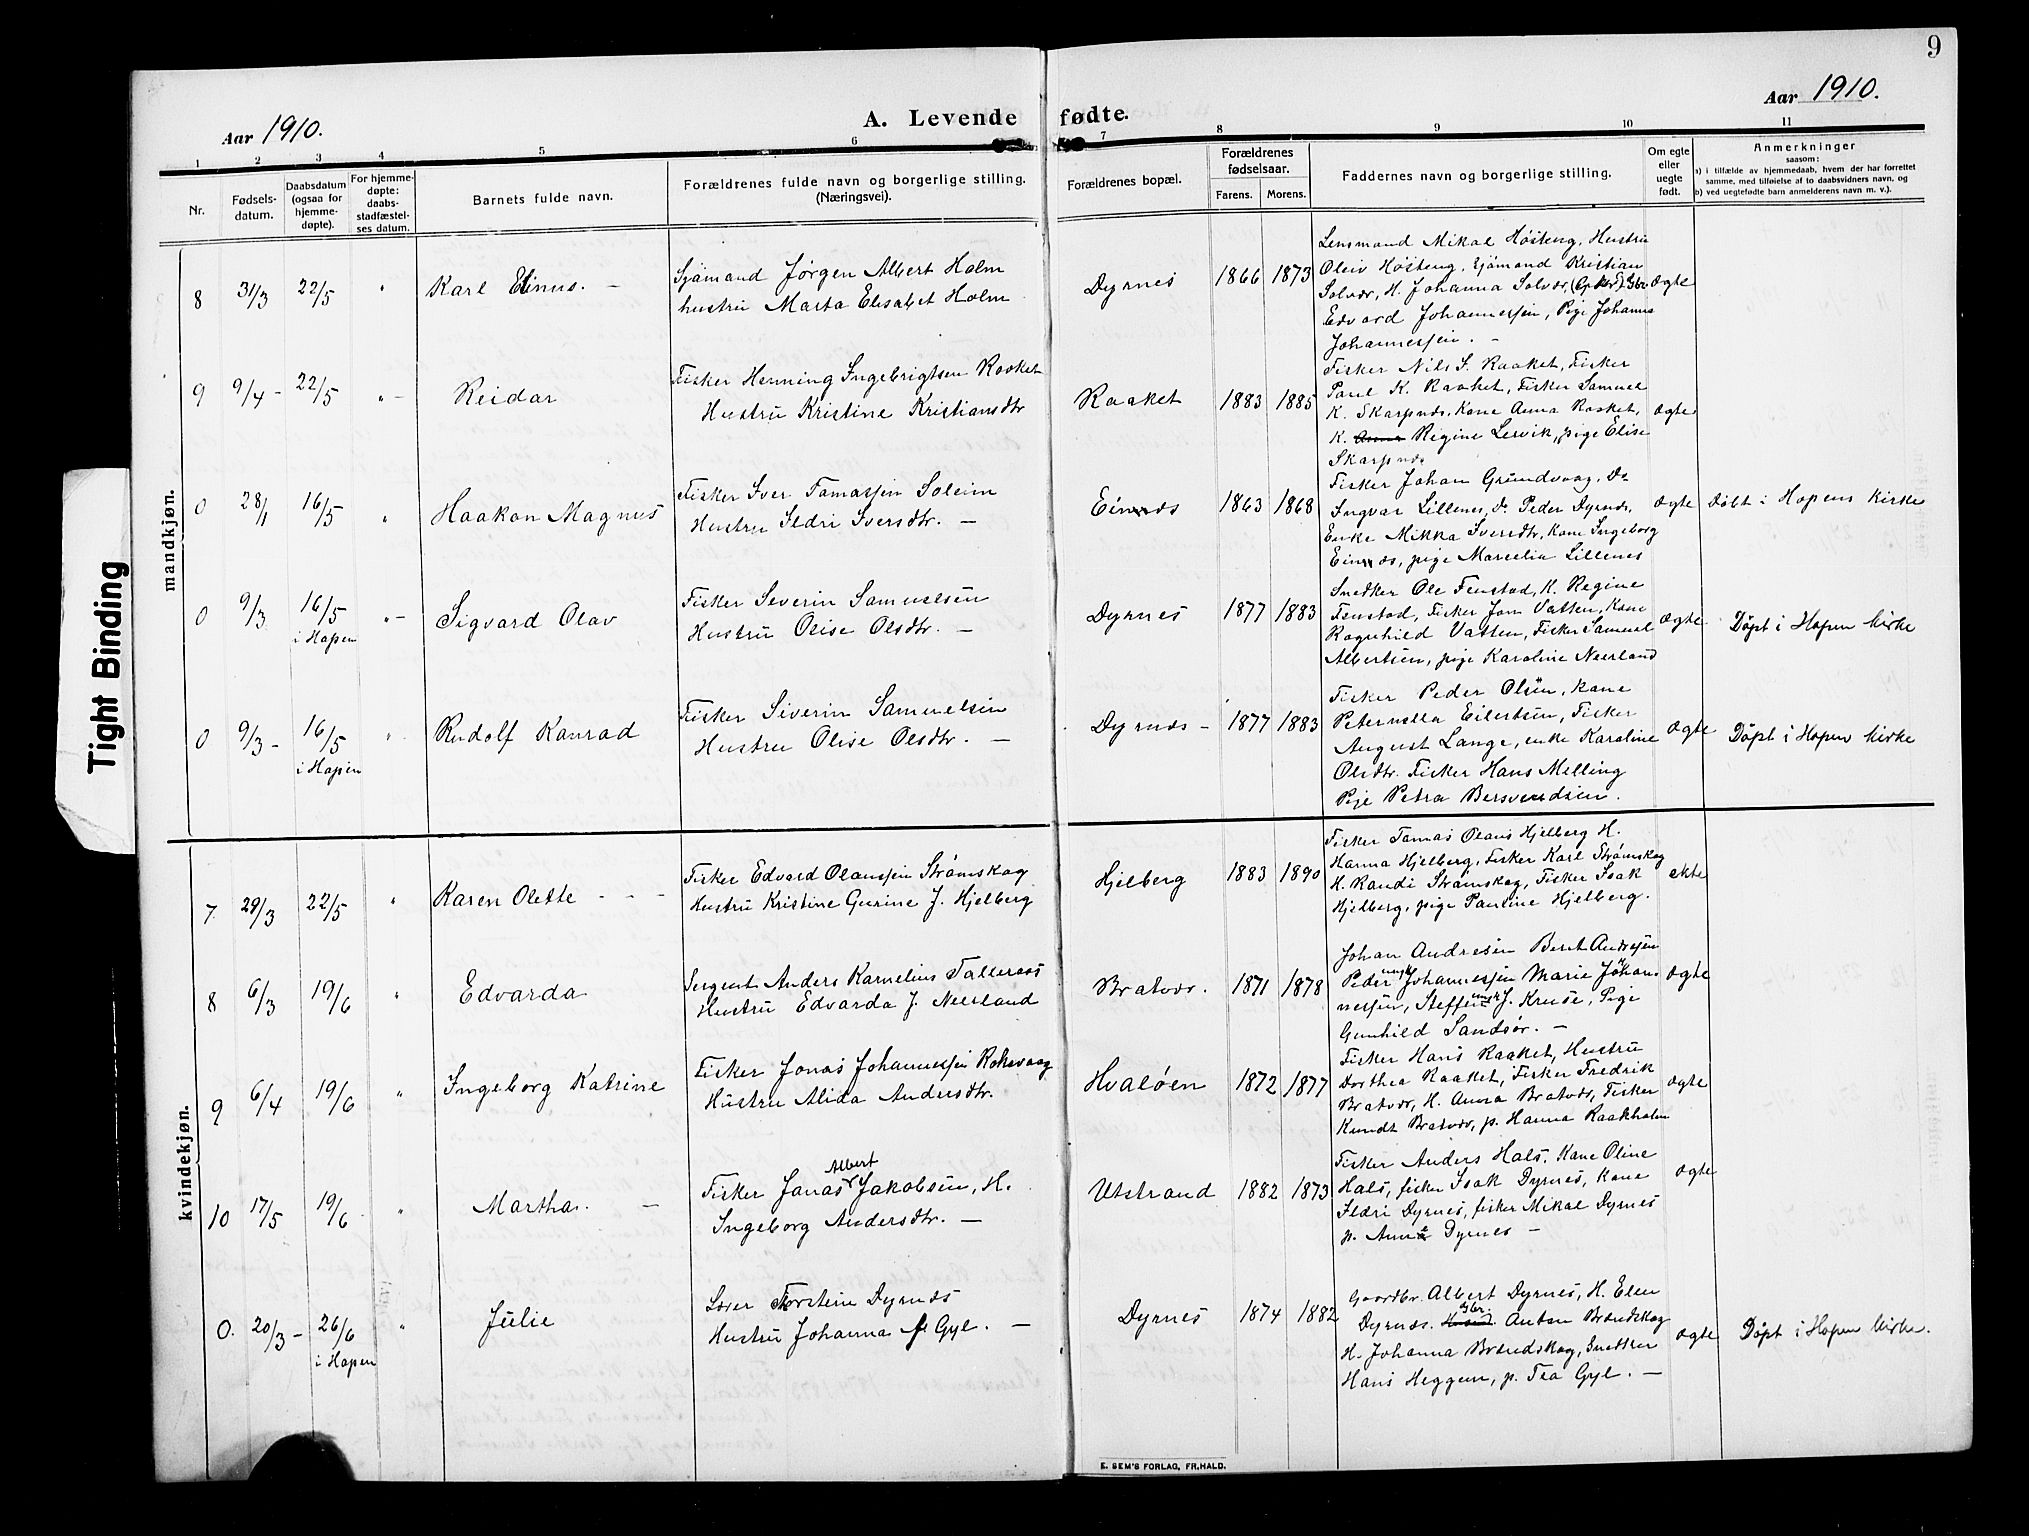 9
Aar 1910.
A. Levende fødte.
Aar 1910.
1 2 3 4 5 6 7 8 9 10 11
Nr.
Fødsels-
datum.
Daabsdatum
(ogsaa for
hjemme-
døpte).
For hjemme-
døpte:
daabs-
stadfæstel-
ses datum.
Barnets fulde navn.
Forældrenes fulde navn og borgerlige stilling.
(Næringsvei).
Forældrenes bopæl.
Forældrenes
fødselsaar.
Farens. Morens.
Faddernes navn og borgerlige stilling.
Om egte
eller
uegte
født.
Anmerkninger
saasom:
a) i tilfælde av hjemmedaab, hvem der har forrettet
samme, med tilføielse af to daabsvidners navn, og
b) ved uegtefødte barn anmelderens navn m. v.).
Tight Binding
mandkjøn.
8 31/3 22/5 " Karl Elinus. -
Sjømand Jørgen Albert Holm
hustru Marta Elisabet Holm
Dyrnes 1866 1873
Lensmand Mikal Høsteng, Hustru
Oleiv Høsteng, Sjømand Kristian
Solvær, H. Johanna Solvær, Gbr
Edvard Johannessen, Pige Johanna
Johannessen. -
ægte
9 9/4 - 22/5 " - Reidar
Fisker Henning Ingebrigtsen Raaket
Hustru Kristine Kristiansdtr
Raaket 1883 1885
Fisker Nils S. Raaket, Fisker
Paul K. Raaket, Fisker Samuel
K. Skarpnes, Kone Anna Raaket,
K. Regine Lervik, pige Elise
Skarpnes
ægte
0 28/1 16/5 " Haakon Magnus
Fisker Iver Tomassen Soleim
Hustru Ildri Iversdtr. -
Einnes 1863 1868
Fisker Johan Grundvaag, Do
Ingvar Lillenes, Do Peder Dyrnes,
Enke Mikka Iversdtr, Kone Ingeborg
Einnes, pige Marselia Lillenes
ægte Døbt i Hopens Kirke
0 9/3 16/5 " - Sigvard Olav
i Hopen
Fisker Severin Samuelsen
Hustru Olise Olsdtr. -
Dyrnes 1877 1883
Snedker Ole Fenstad, K. Regine
Fenstad, Fisker Jon Vatten, Kone
Ragnhild Vatten, Fisker Samuel
Albertsen, pige Karoline Neerland
ægte Døpt i Hopen kirke
0 9/3 - 16/5 " Rudolf Konrad
i Hopen
Fisker Siverin Samuelsen
Hustru Olise Olsdtr. -
Dyrnes - 1877 1883
Fisker Peder Olsen, kone
Peternella Eilertsen, Fisker
August Lange, enke Karoline
Olsdtr. Fisker Hans Melling
Pige Petra Bersvendsen.
ægte Døpt i Hopen kirke
kvindekjøn.
7 29/3 22/5 " Karen Olette - - -
Fisker Edvard Olaussen Strømskag
Hustru Kristine Gurine J. Hjelberg
Hjelberg 1883 1890
Fisker Tomas Olaus Hjelberg H.
Hanna Hjelberg, Fisker Karl Strømskag
H. Randi Strømskag, Fisker Isak
Hjelberg, pige Pauline Hjelberg.
ekte
8 6/3 19/6 " Edvarda
Sergent Anders Kornelius Talleraas
Hustru Edvarda J. Neerland
Bratvær. 1871 1878
Johan Andresen Berit Andresen
Peder Johannessen Marie Johan-
nessen, Steffen J. Kruse, Pige
Gunhild Sandsør. -
ægte
9 6/4 19/6 " Ingeborg Katrine
Fisker Jonas Johannessen Roksvaag
Hustru Alida Andersdtr.
Hvaløen 1872 1877
Fisker Hans Raaket, Hustru
Dorthea Raaket, Fisker Fredrik
Bratvær, H. Anna Bratvær, Fisker
Knudt Bratvær, p. Hanna Raakholm
ægte
10 17/5 19/6 " Martha. -
Albert
Fisker Jonas Jakobsen, H.
Ingeborg Andersdtr. -
Utstrand 1882 1873
Fisker Anders Hals, Kone Oline
Hals, fisker Isak Dyrnes, Kone
Ildri Dyrnes, fisker Mikal Dyrnes
p. Anna Dyrnes -
ægte
0. 20/3 - 26/6 " Julie
i Hopen
Lærer Torstein Dyrnes
Hustru Johanna f. Gyl. -
Dyrnes 1874 1882
Gaardbr. Albert Dyrnes, H. Elen
Dyrnes. Gbr. Anton Brændskag
H. Johanna Brændskag, Snekker
Hans Heggem, p. Tea Gyl. -
ægte Døpt i Hopen kirke.
E. SEM'S FORLAG, FR.HALD.